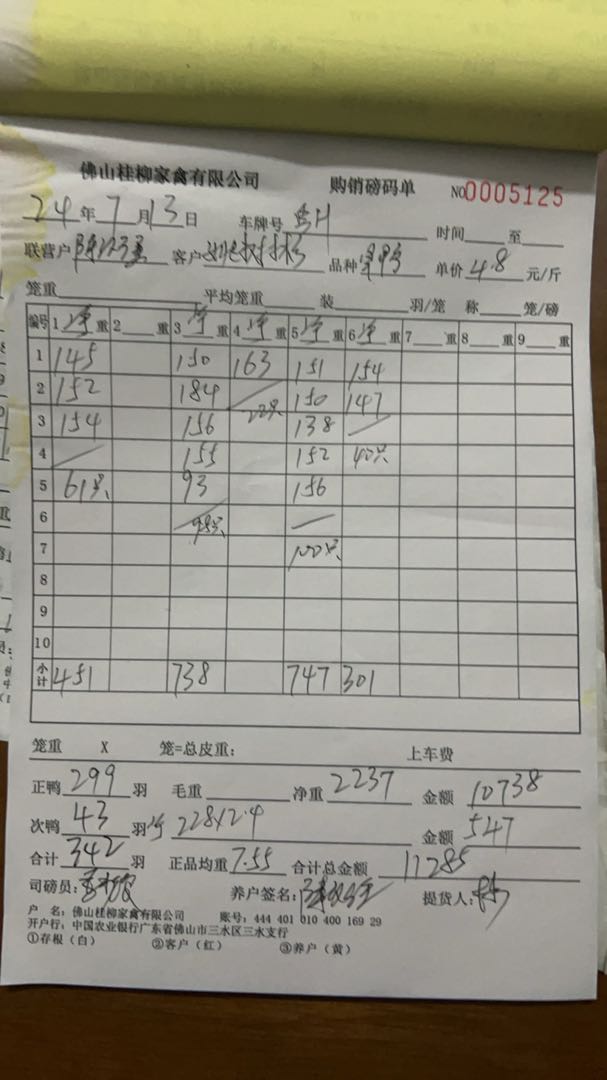 佛山桂柳家禽有限公司 购销磅码单 NO0005125
24年7月13日 车牌号 时间 至
联营户 客户 品种 单价4.8元/斤
笼重 平均笼重 装 羽/笼 称 笼/磅
编号 1净重 2重 3净重 4净重 5净重 6净重 7重 8重 9重
1 145 150 163 151 154
2 152 184 150 147
3 154 156 138
4 155 152 40只
5 61只 93 156
6
7 100只
8
9
10
小计 451 738 747 301
笼重 X 笼=总皮重: 上车费
正鸭299羽 毛重 净重2237 金额10738
次鸭43羽 228×2.4 金额547
合计342羽 正品均重7.55 合计总金额11285
司磅员: 养户签名: 提货人:
户 名:佛山桂柳家禽有限公司 账号:444 401 010 400 169 29
开户行:中国农业银行广东省佛山市三水区三水支行
①存根(白) ②客户(红) ③养户(黄)